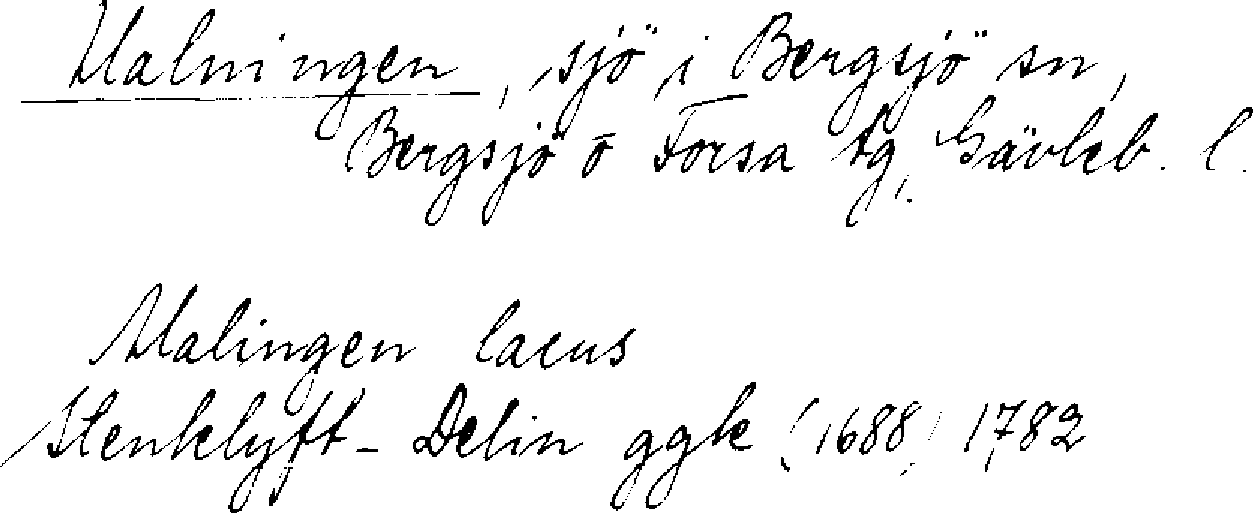 Malningen, sjö i Bergsjö sn,
Bergsjö o Forsa tg, Gävleb. l.
Malingen lacus
Stenklyft - Delin ggk (1688) 1782